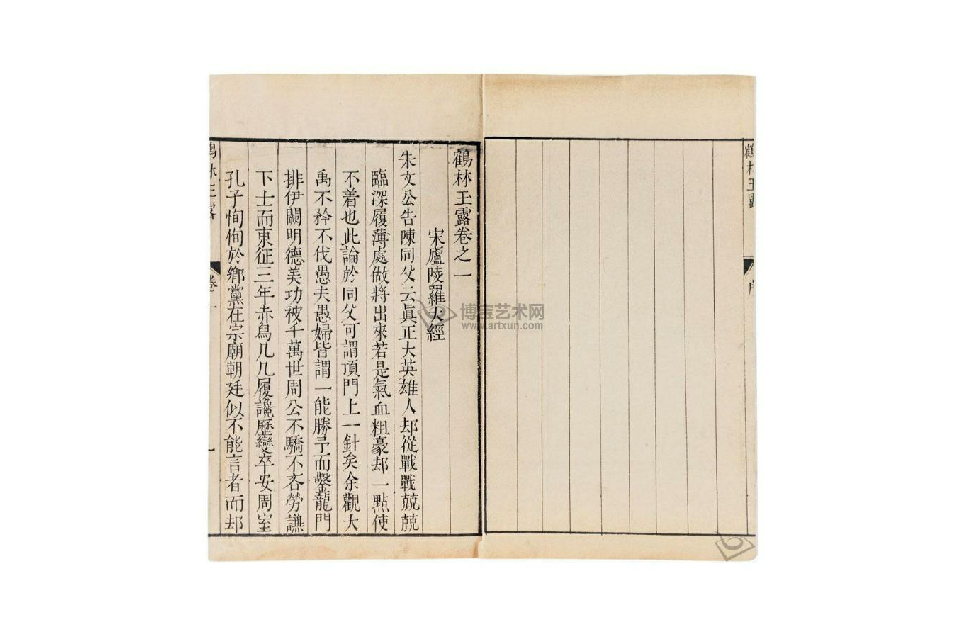 鶴林玉露卷之一
宋廬陵羅大經
朱文公告陳同父云眞正大英雄人却從戰戰兢兢
臨深履薄處做將出來若是氣血粗豪却一點使
不着也此論於同父可謂頂門上一針矣余觀大
禹不矜不伐愚夫愚婦皆謂一能勝予而鑿龍門
排伊闕明德美功被千萬世周公不驕不吝勞謙
下士而東征三年赤舄几几履讒歷變卒安周室
孔子恂恂於鄉黨在宗廟朝廷似不能言者而却
鶴林玉露
卷一
一
鶴林玉露
序
博宝艺术网
www.artxun.com